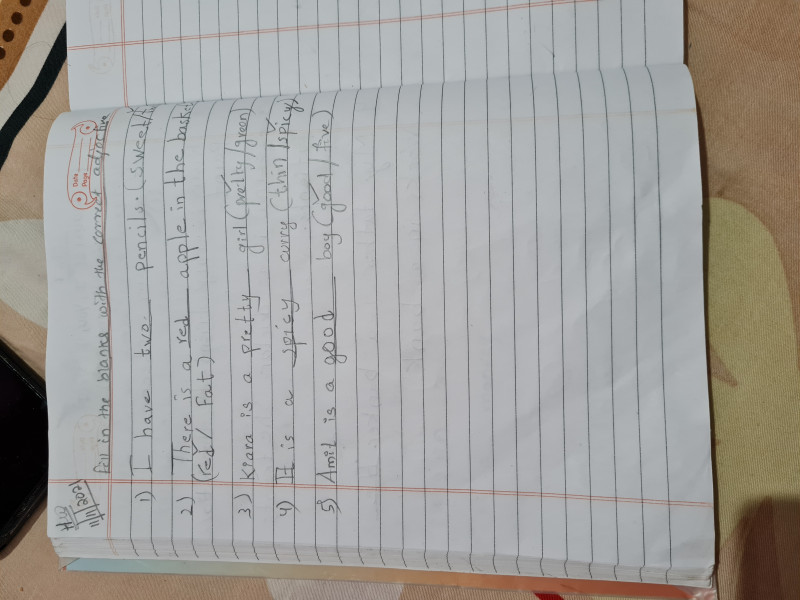 HW
11/11/2021
Date
Page
fill in the blanks with the correct adjective
1) I have two pencils. (sweet/
2) There is a red apple in the
(red / Fat)
3) Kiara is a pretty girl (pretty/green)
4) It is a spicy curry (thin/spicy)
5) Amit is a good boy (good/five)